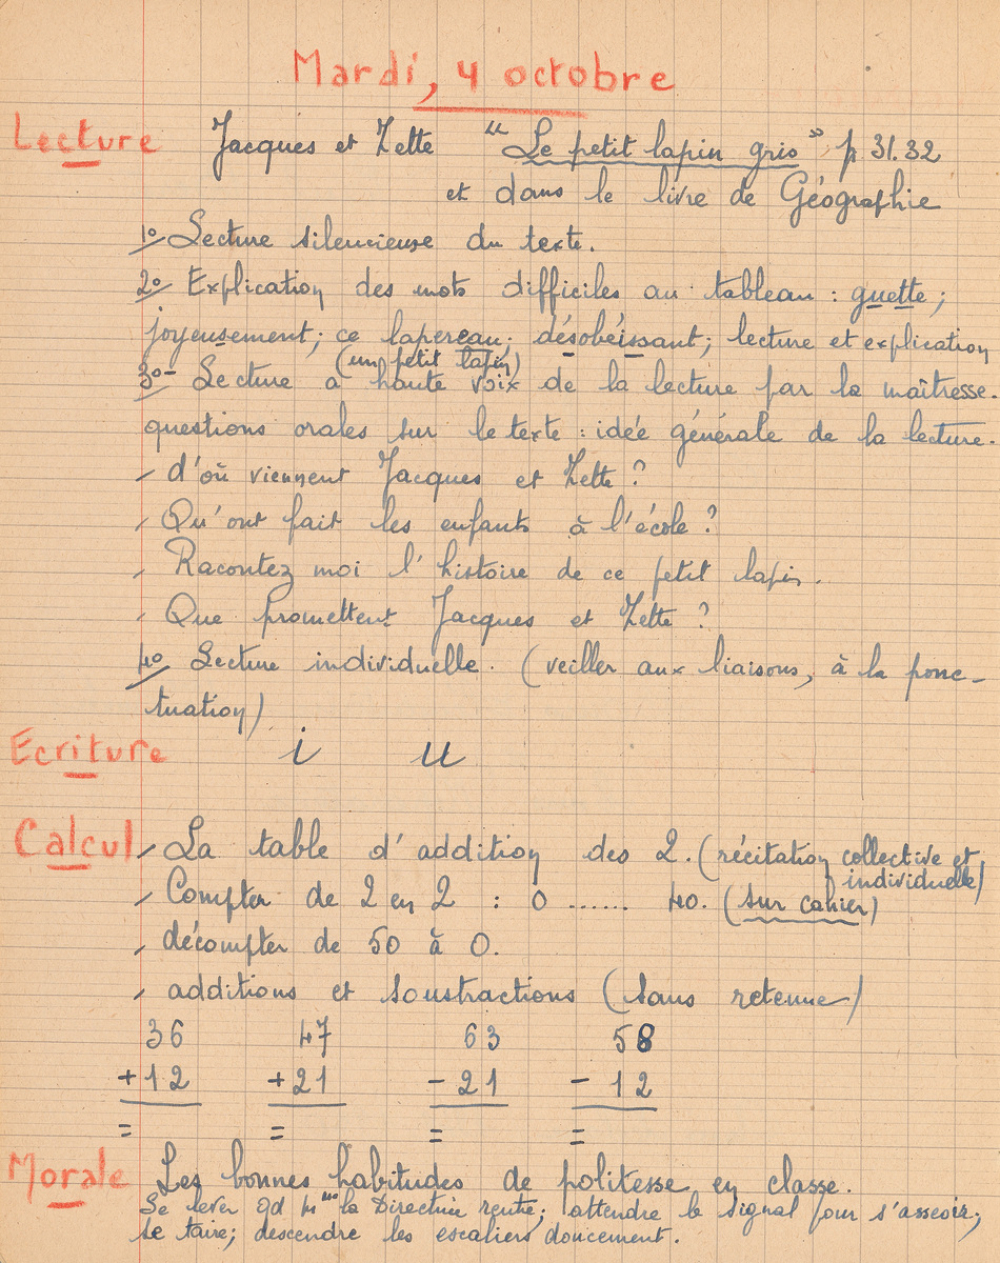 Mardi, 4 octobre
Lecture Jacques et Zette "Le petit lapin gris" p 31.32
et dans le livre de Géographie
1º Lecture silencieuse du texte.
2º Explication des mots difficiles au tableau : guette ;
joyeusement ; ce lapereau ; désobéissant ; lecture et explication
(un petit lapin)
3º- Lecture à haute voix de la lecture par la maîtresse.
questions orales sur le texte : idée générale de la lecture.
- d'où viennent Jacques et Zette ?
- Qu'ont fait les enfants à l'école ?
- Racontez moi l'histoire de ce petit lapin.
- Que promettent Jacques et Zette ?
4º Lecture individuelle. (veiller aux liaisons, à la ponc-
tuation)
Ecriture i u
Calcul - La table d'addition des 2. (récitation collective et
individuelle)
- Compter de 2 en 2 : 0 ...... 40. (sur cahier)
- décompter de 50 à 0.
- additions et soustractions (sans retenue)
36 47 63 58
+12 +21 -21 -12
= = = =
Morale Les bonnes habitudes de politesse en classe.
Se lever qd Mme la Directrice rentre ; attendre le signal pour s'asseoir ;
se taire ; descendre les escaliers doucement.